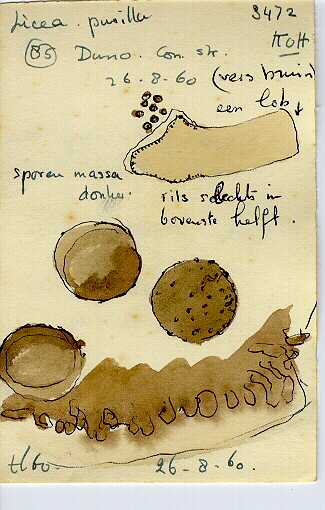 Licea. pusilla 3472
(B5) Duno. Con. str. KOH
26-8-60 (vers bruin)
een lob
sporen massa
donker.
rils slechts in
bovenste helft.
26-8-60.